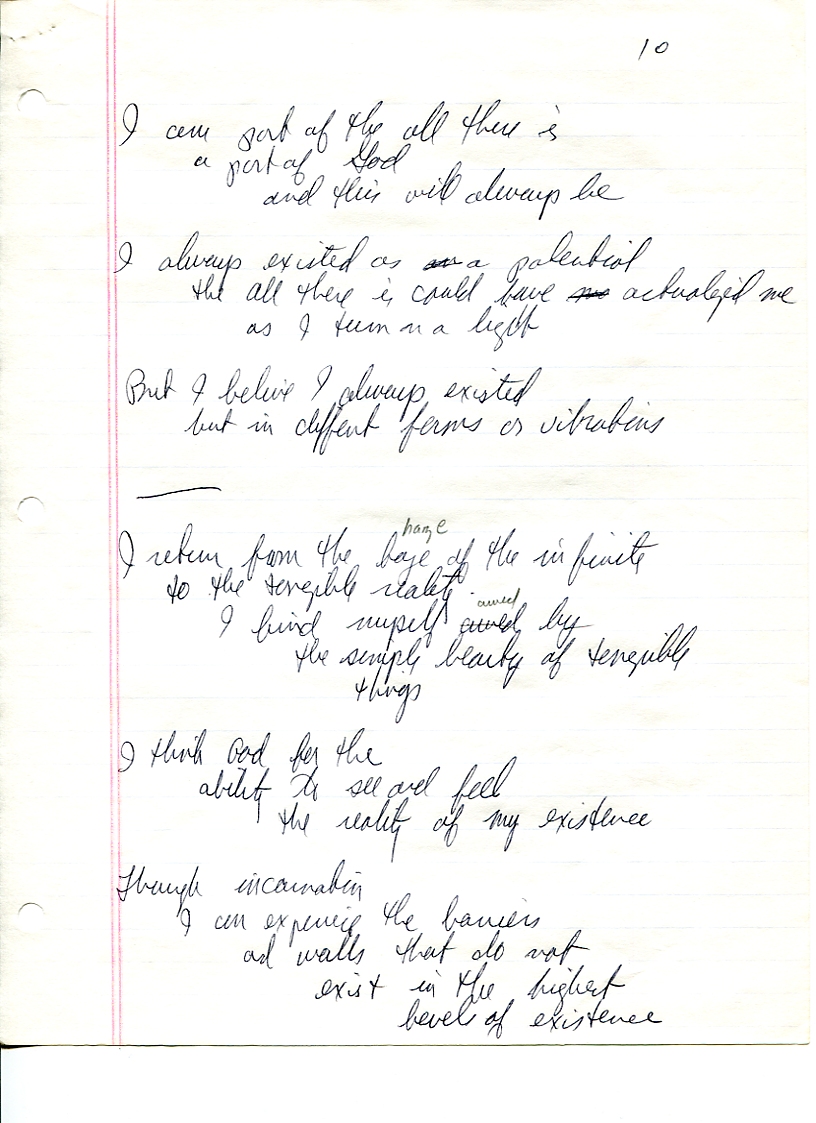 10
I am part of the all there is
a part of God
and this will always be
I always existed as an a potential
the all there is could have me actualized me
as I turn n a light
But I belive I always existed
but in diffent forms or vibrations
haze
I return from the haze of the infinite
to the tangible reality.
awed
I find myself awed by
the simple beauty of tangible
things
I think God for the
ability to see and feel
the reality of my existence
Though incarnation
I can experience the barriers
ad walls that do not
exist in the highest
levels of existence